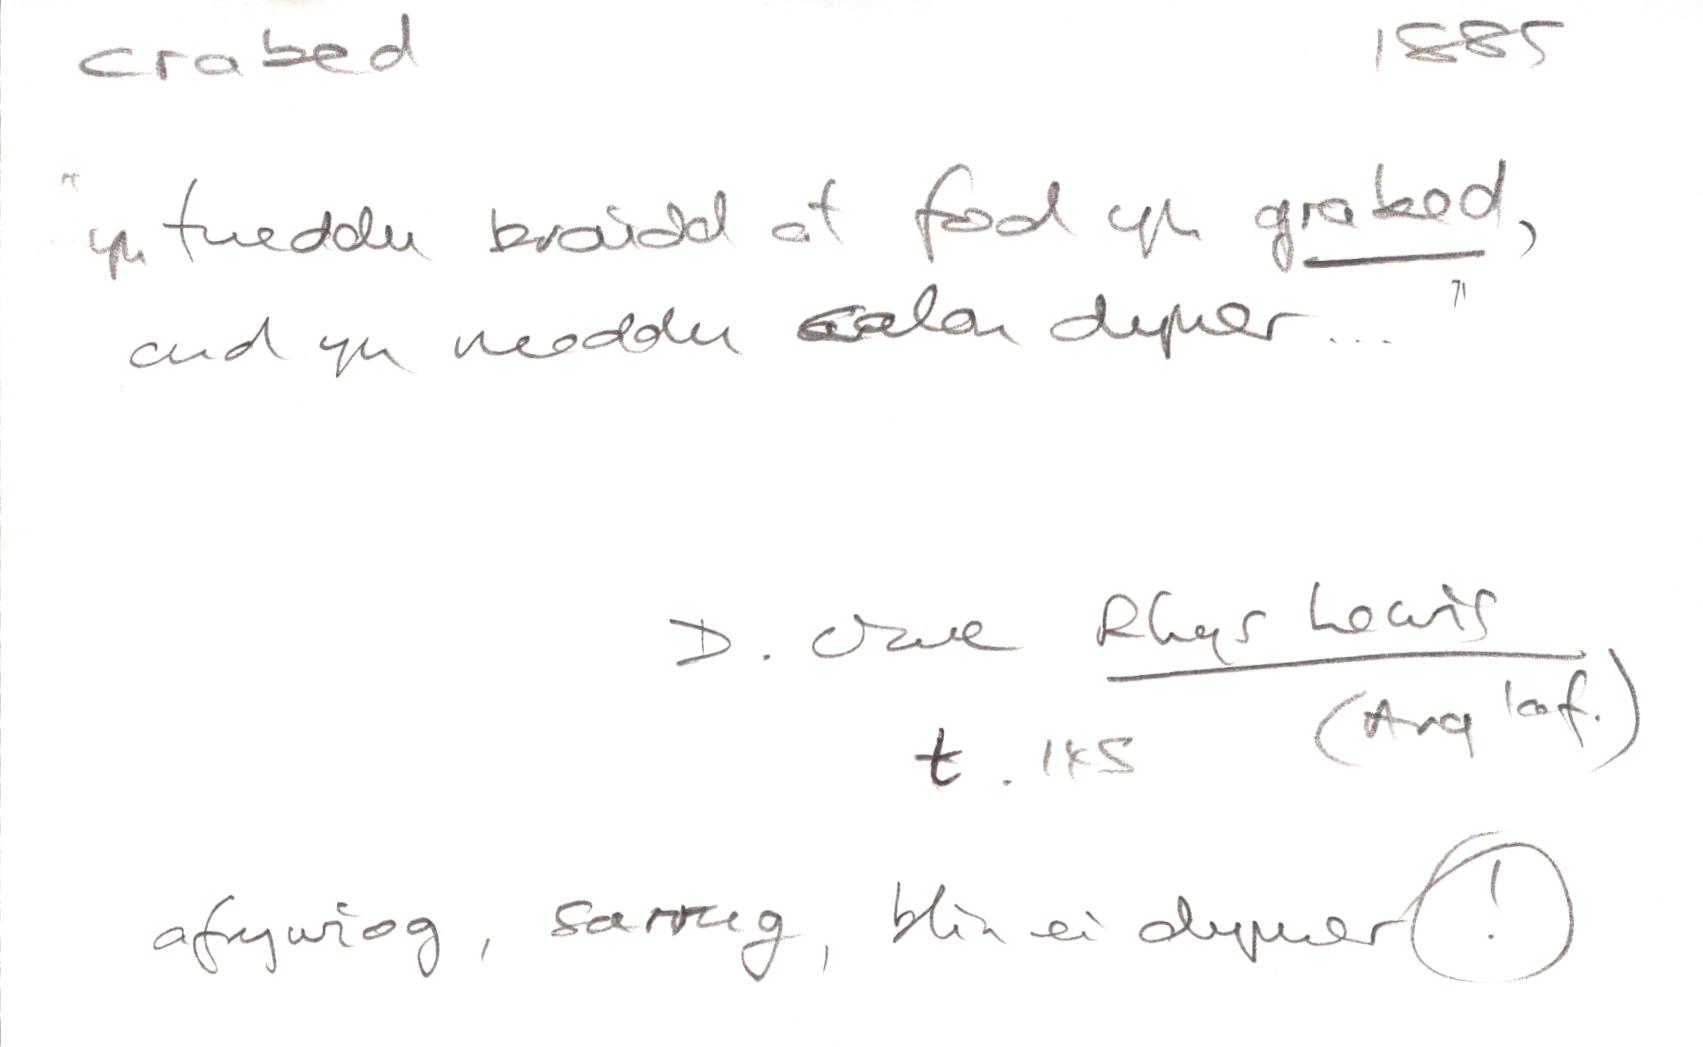 crabed 1885
"yn tueddu braidd at fod yn grabed,
ond yn meddu calon dyner..."
D. Owen Rhys Lewis
t. 145 (Arg laf.)
afrywiog, sarrug, blin ei dymer (!)